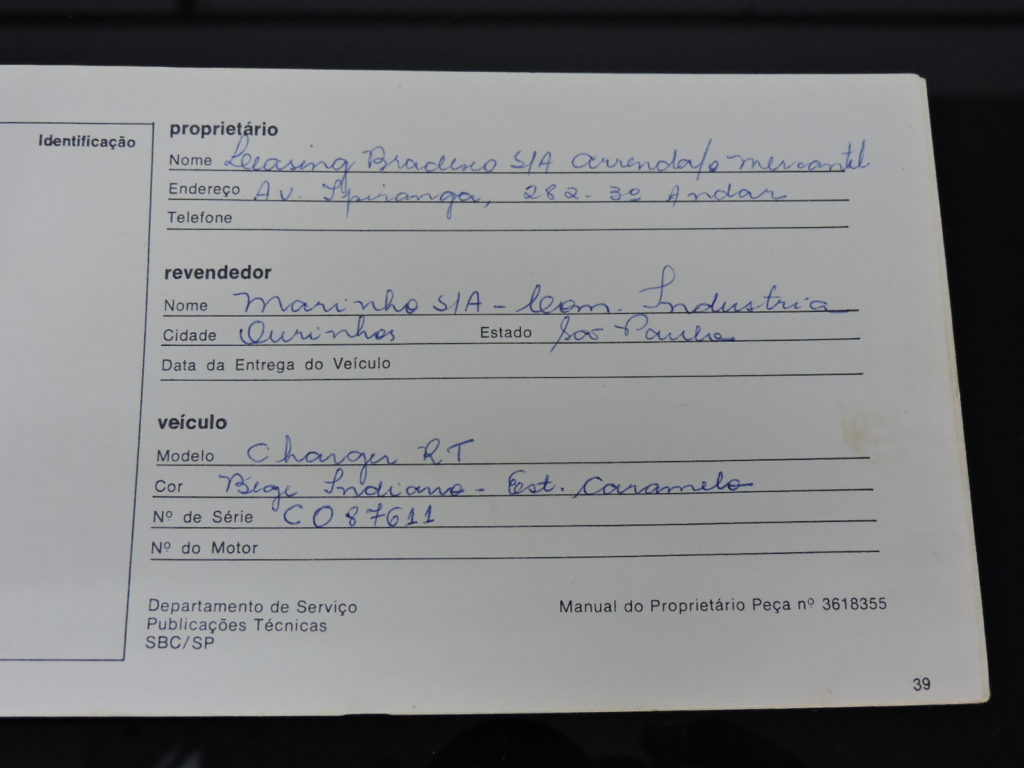 Identificação
proprietário
Nome Leasing Bradesco S/A arrenda/o mercantil
Endereço Av. Ipiranga, 282 - 3º Andar
Telefone
revendedor
Nome Marinho S/A - Com. Industria
Cidade Ourinhos Estado São Paulo
Data da Entrega do Veículo
veículo
Modelo Charger RT
Cor Bege Indiano - Est. Caramelo
Nº de Série C087611
Nº do Motor
Departamento de Serviço
Publicações Técnicas
SBC/SP
Manual do Proprietário Peça nº 3618355
39